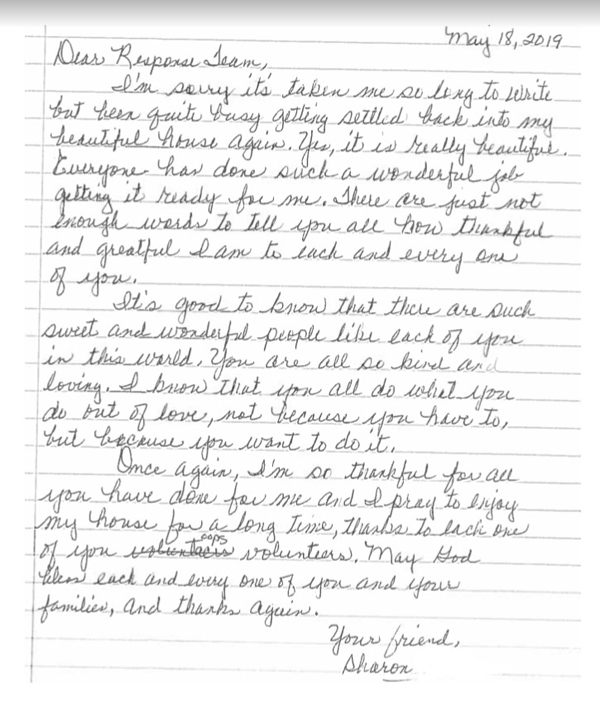 May 18, 2019
Dear Response Team,
I'm sorry it's taken me so long to write
but been quite busy getting settled back into my
beautiful house again. Yes, it is really beautiful.
Everyone has done such a wonderful job
getting it ready for me. There are just not
enough words to tell you all how thankful
and greatful I am to each and every one
of you.
It's good to know that there are such
sweet and wonderful people like each of you
in this world. You are all so kind and
loving. I know that you all do what you
do out of love, not because you have to,
but because you want to do it.
Once again, I'm so thankful for all
you have done for me and I pray to enjoy
my house for a long time, thanks to each one
oops
of you volunteers. May God
bless each and every one of you and your
families, and thanks again.
Your friend,
Sharon